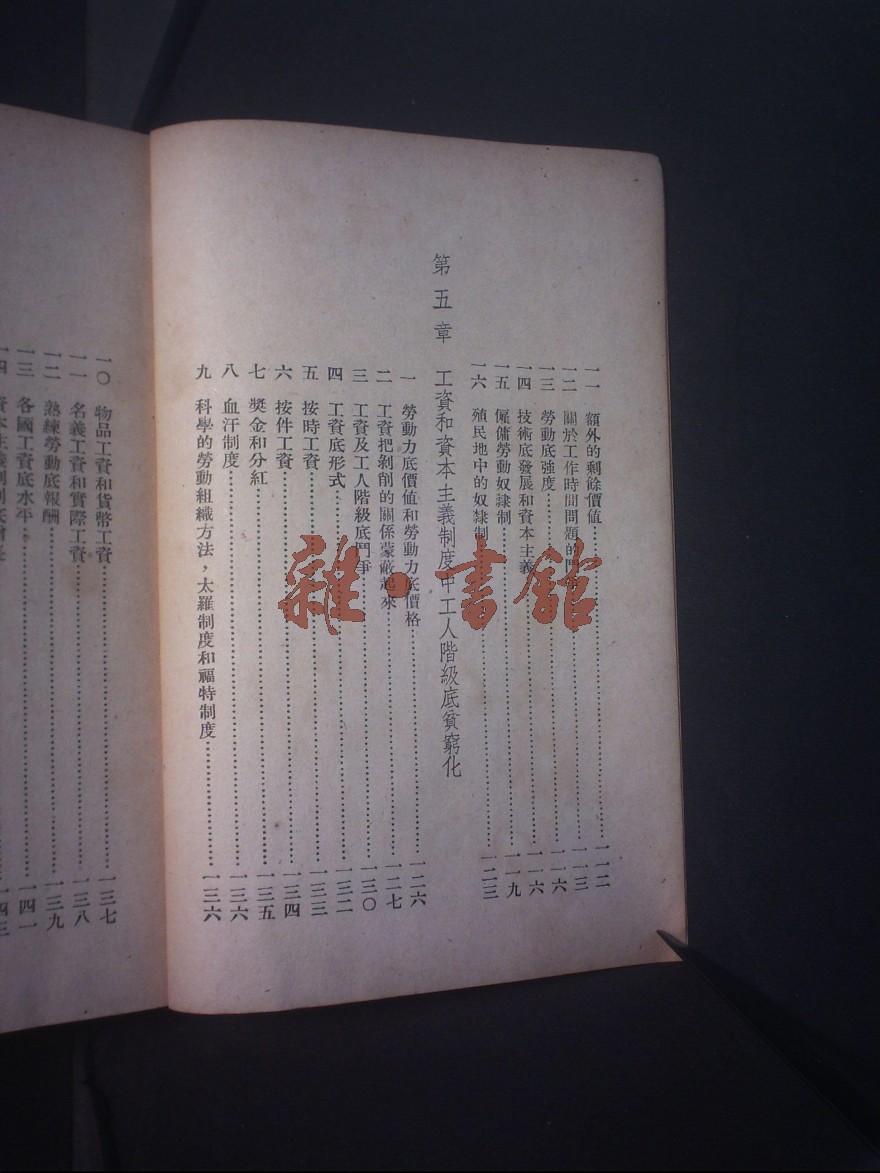 一一 額外的剩餘價值 一一二
一二 關於工作時間問題的鬥爭 一一三
一三 勞動底強度 一一六
一四 技術底發展和資本主義 一一六
一五 僱傭勞動奴隸制 一一九
一六 殖民地中的奴隸制 一二三
第五章 工資和資本主義制度中工人階級底貧窮化
一 勞動力底價值和勞動力底價格 一二六
二 工資把剝削的關係蒙蔽起來 一二七
三 工資及工人階級底鬥爭 一三〇
四 工資底形式 一三二
五 按時工資 一三三
六 按件工資 一三四
七 獎金和分紅 一三五
八 血汗制度 一三六
九 科學的勞動組織方法，太羅制度和福特制度 一三六
一〇 物品工資和貨幣工資 一三七
一一 名義工資和實際工資 一三八
一二 熟練勞動底報酬 一三九
一三 各國工資底水平 一四一
雜·書館